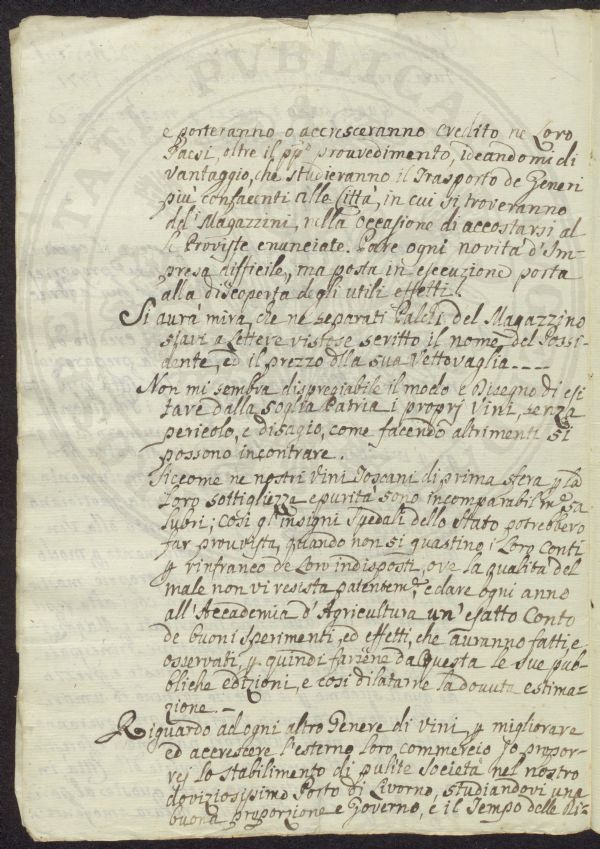 e porteranno o accresceranno credito ne Loro
Paesi, oltre il pp.º prouvedimento, ideandomi di
vantaggio, che studieranno il Trasporto de Generi
più confacenti alle Città, in cui si troveranno
del' Magazzini, nella occasione di accostarsi al
le Proviste enunciate. Pare ogni novità d'Im-
presa difficile, ma posta in esecuzione porta
alla discoperta degli utili effetti.
Si aurà mira, che ne separati Palchi del Magazzino
stavi a Lettere vistose scritto il nome del Possi-
dente, ed il prezzo della sua Vettovaglia ----
Non mi sembra dispregiabile il modo e Disegno di esi
tare dalla soglia Patria i proprj Vini, senza
pericolo, e disagio, come facendo altrimenti si
possono incontrare.
Siccome ne nostri Vini Toscani di prima sfera p la
Loro sottigliezza e purità sono incomparabilm.e sa
lubri; così gl'insigni Spedali dello Stato potrebbero
far prouvista, quando non si guastino i Loro Conti
p rinfranco de Loro indisposti, ove la qualità del
male non vi resista patentem.e e dare ogni anno
all'Accademia d'Agricultura un'esatto Conto
de buoni sperimenti, ed effetti, che auranno fatti, e
osservati, p quindi farsene da Questa le sue pub-
bliche edizioni, e così dilatarne la dovuta estima-
zione. -
Riguardo ad ogni altro Genere di Vini p migliorare
ed accrescere l'esterno loro commercio Io propor-
rej lo stabilimento di pulite Società nel nostro
doviziosissimo Porto di Livorno, studiandovi una
buona proporzione e Governo, e il Tempo delle Ri-